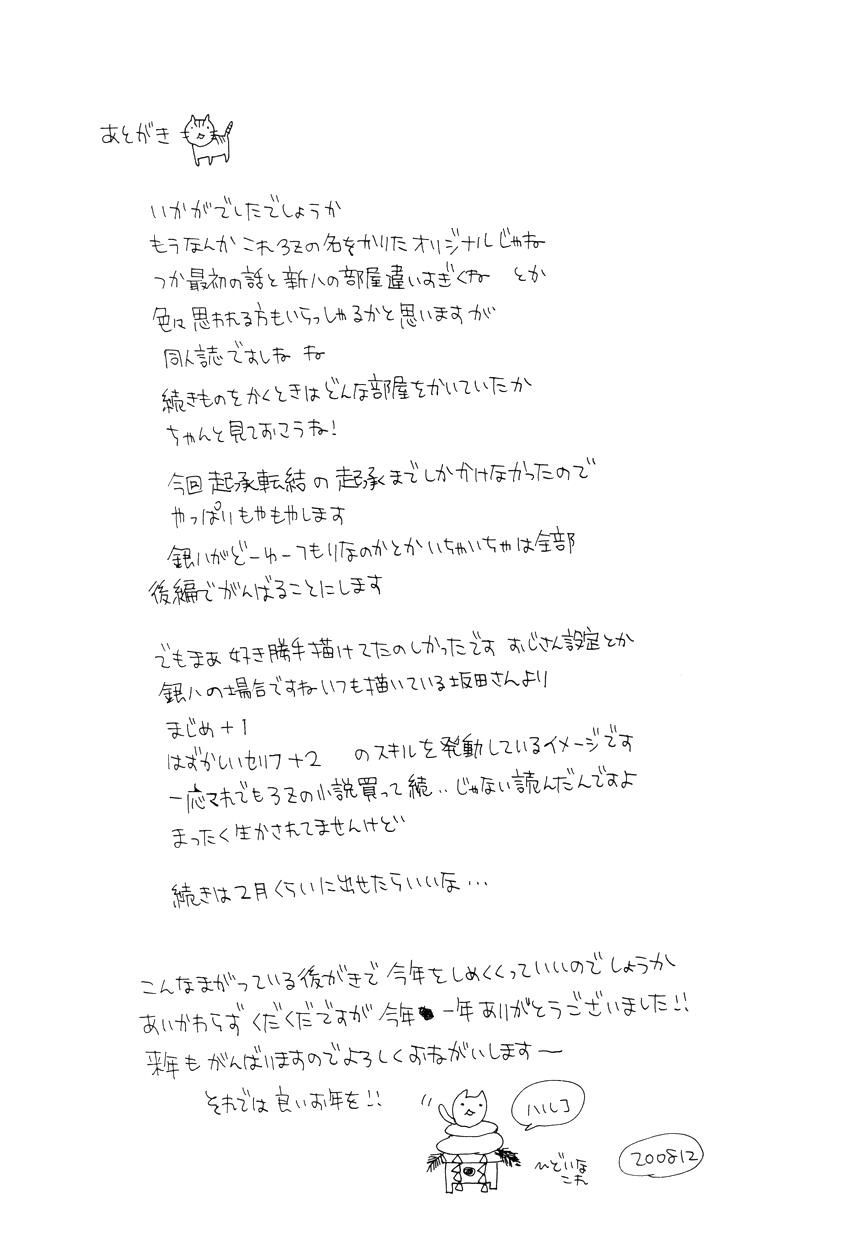 あとがき
いかがでしたでしょうか
もうなんか これ3Zの名をかりた オリジナルじゃね
つか最初の話と新八の部屋違いすぎくね とか
色は思われる方もいらっしゃるかと思いますが
同人誌ですしね ね
続きものをかくときはどんな部屋をかいていたか
ちゃんと見ておこうね!
今回起承転結の起承までしかかけなかったので
やっぱりもやもやします
銀八がどーゆーつもりなのかとかいちゃいちゃは全部
後編でがんばることにします
でもまあ 好き勝手描けてたのしかったです おじさん設定とか
銀八の場合ですねいつも描いている坂田さんより
まじめ+1
はずかしいセリフ+2 のスキルを発動しているイメージです
一応それでも3Zの小説買って続..じゃない読んだんですよ
まったく生かされてませんけど
続きは2月くらいに出せたらいいな…
こんなまがっている後がきで今年をしめくくっていいのでしょうか
あいかわらずぐだぐだですが今年 一年ありがとうございました!!
来年もがんばりますのでよろしくおねがいします〜
それでは良いお年を!!
ハルコ
ひどいな
これ
200812